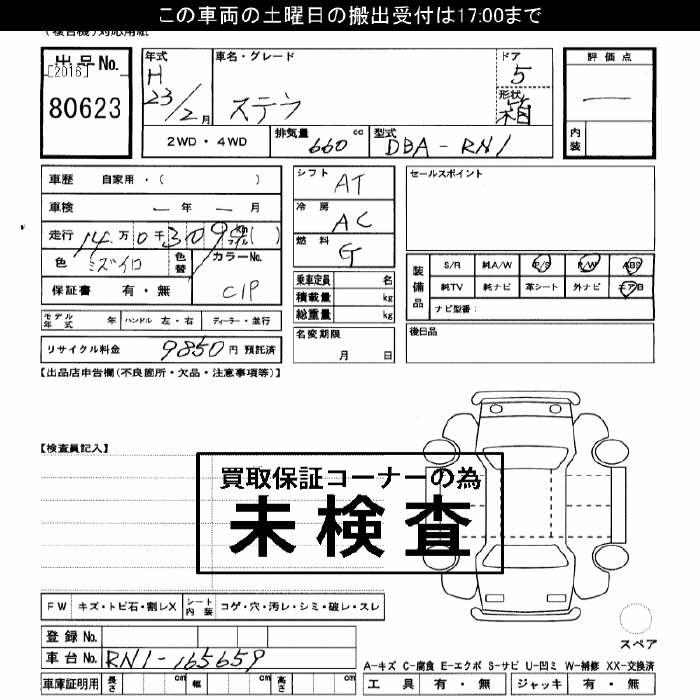 この車両の土曜日の搬出受付は17:00まで
出品No.
[2016]
80623
年式
H
23/2月
車名・グレード
ステラ
ドア
5
形状
箱
評価点
―
内装
2WD・4WD
排気量 660 cc
型式 DBA-RN1
車歴 自家用・( )
車検 ― 年 ― 月
走行 14万0千309 km マイル ( )
色 ミズイロ
色替
カラーNo.
CIP
保証書 有・無
モデル年式 年 ハンドル 左・右 ディーラー・並行
リサイクル料金 9850 円 預託済
シフト AT
冷房 AC
燃料 G
乗車定員 名
積載量 kg
総重量 kg
名変期限
月 日
セールスポイント
装備品
S/R 純A/W P/S P/W ABS
純TV 純ナビ 革シート 外ナビ エアB
ナビ型番:
後日品
【出品店申告欄(不良箇所・欠品・注意事項等)】
【検査員記入】
買取保証コーナーの為
未検査
FW キズ・トビ石・割レX シート内装 コゲ・穴・汚レ・シミ・破レ・スレ
登録No.
車台No. RN1-165659
車庫証明用 長さ cm 幅 cm 高さ cm
スペア
A-キズ C-腐食 E-エクボ S-サビ U-凹ミ W-補修 XX-交換済
工具 有・無 ジャッキ 有・無